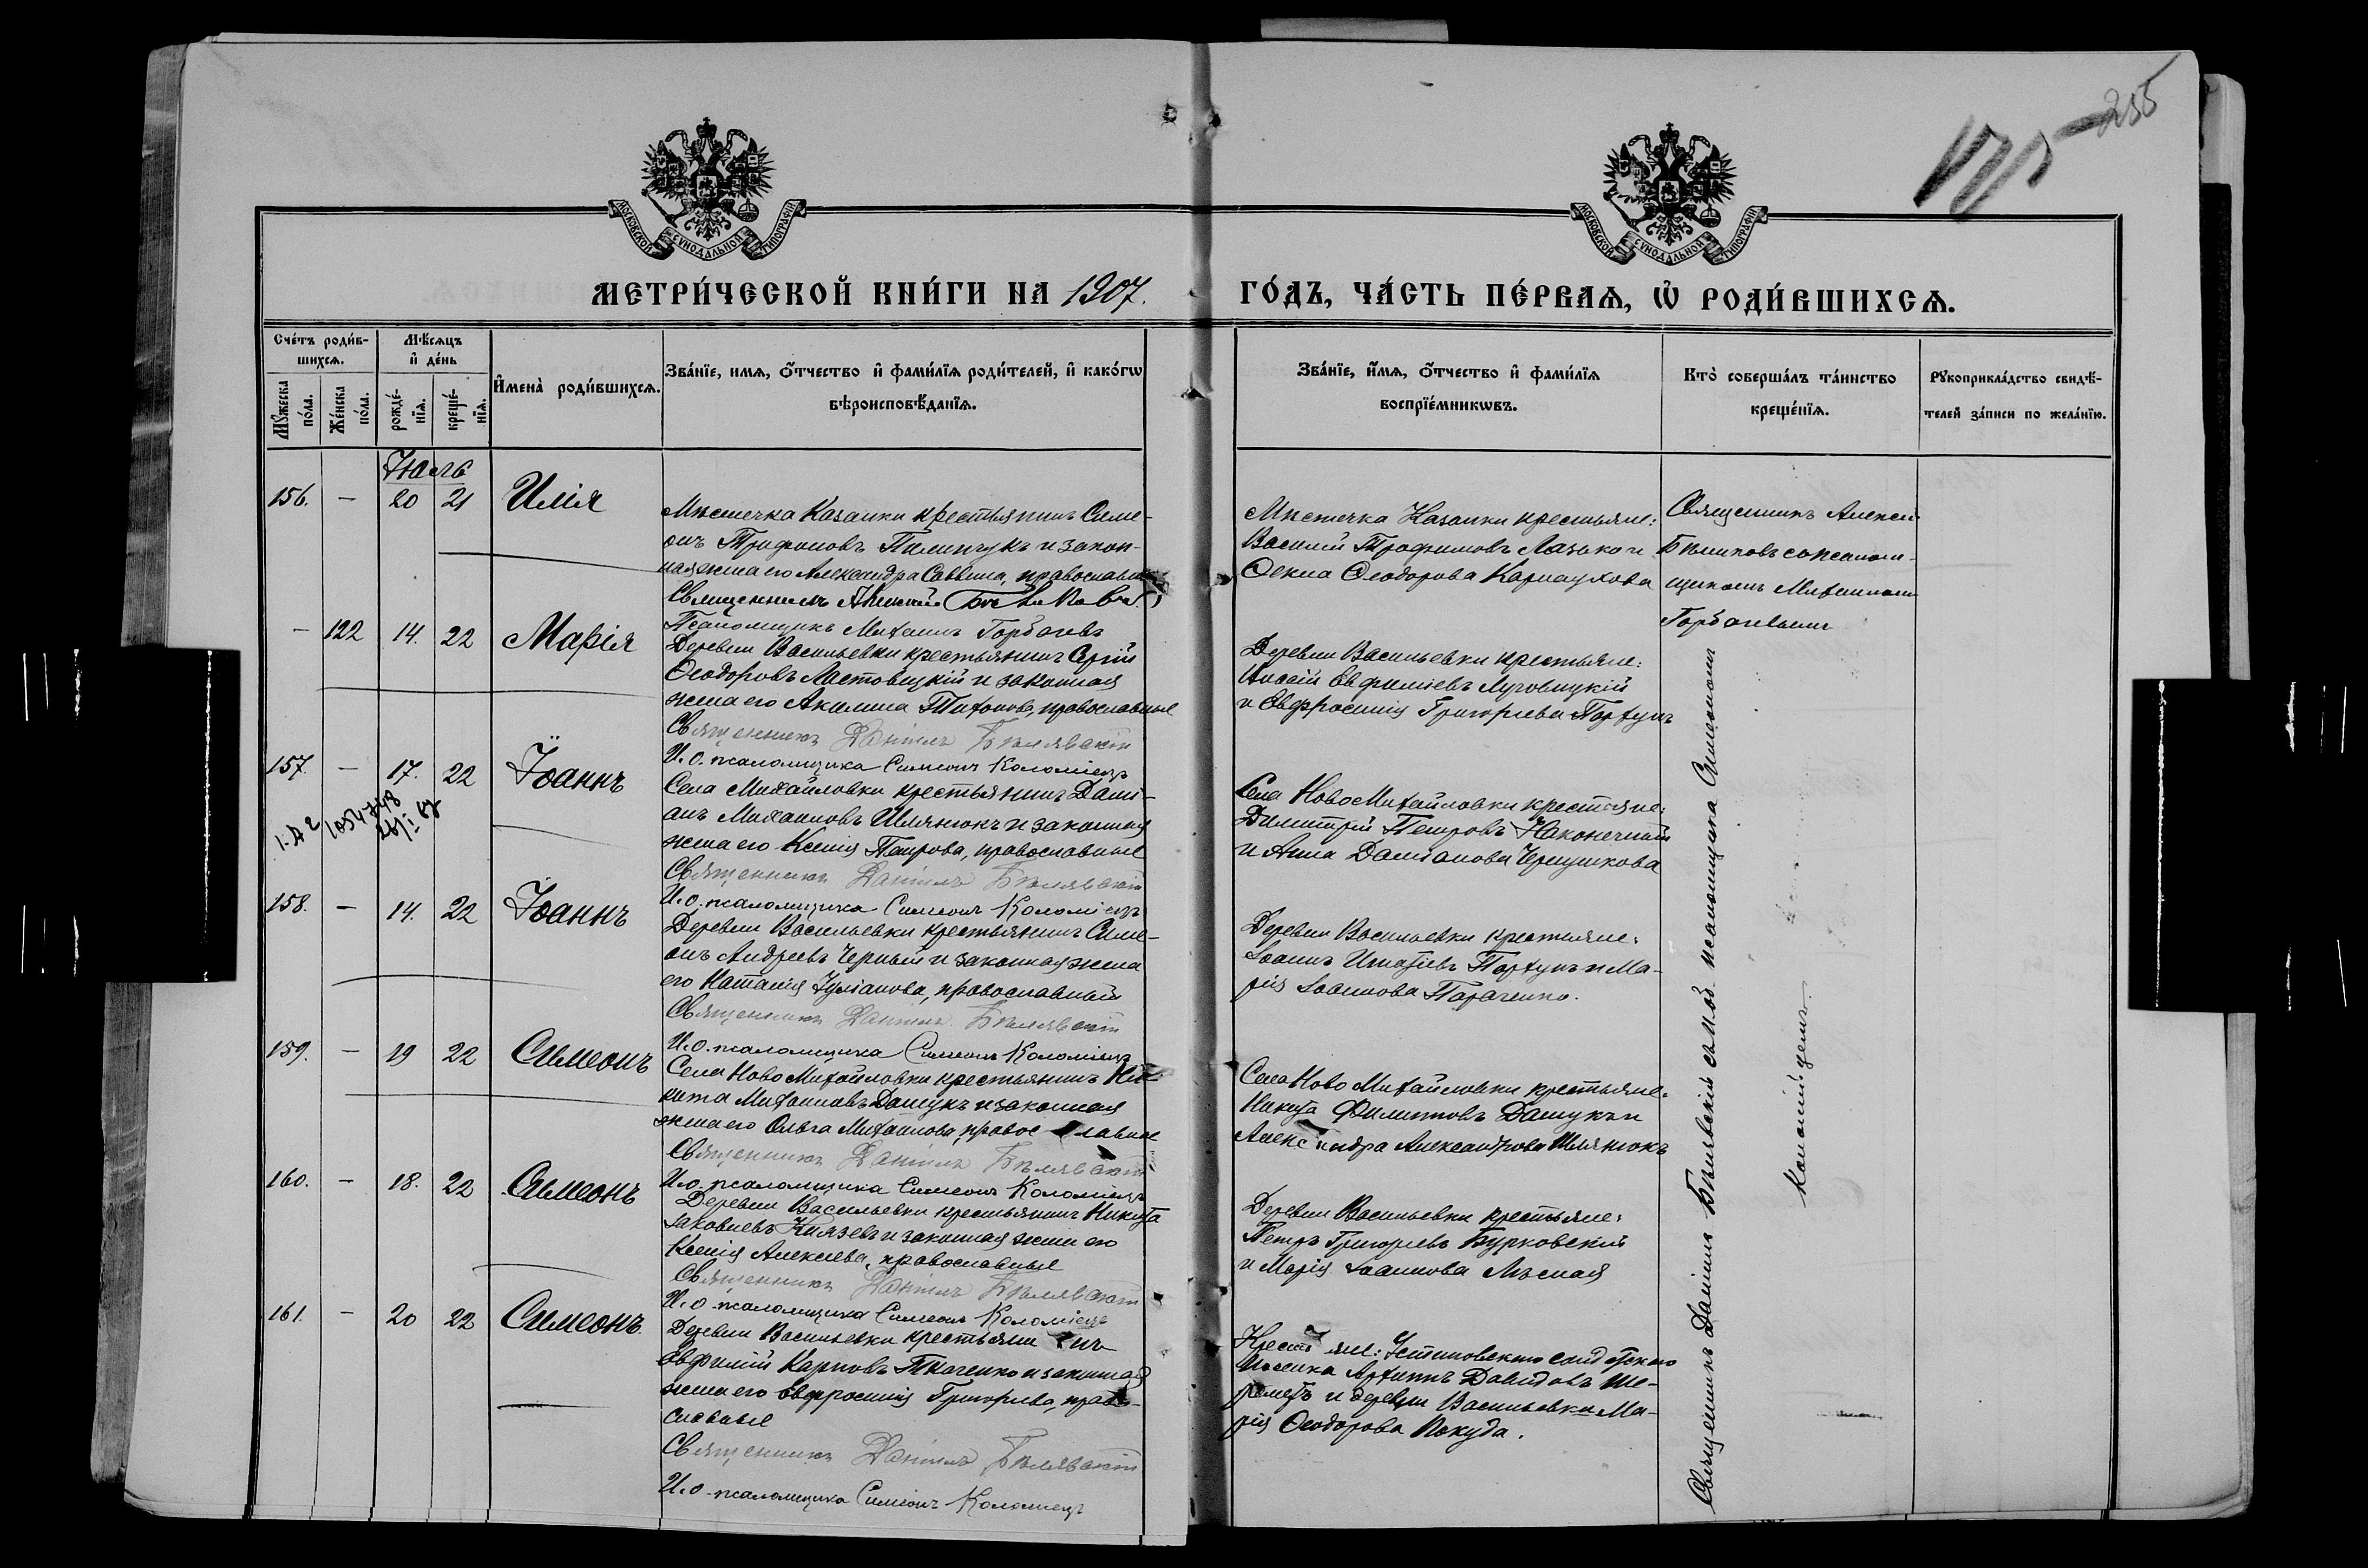 235
175
МОСКОВСКОЙ СѴНОДАЛЬНОЙ ТИПОГРАФІИ
МОСКОВСКОЙ СѴНОДАЛЬНОЙ ТИПОГРАФІИ
МЕТРИ́ЧЕСКОЙ КНИ́ГИ НА 1907. ГО́ДЪ, ЧА́СТЬ ПЕ́РВАѦ, Ѽ РОДИ́ВШИХСѦ.
Сче́тъ роди́в-
шихсѧ.
Мꙋжеска по́ла.
Же́нска по́ла.
Мѣ́сѧцъ
и҆ де́нь
рожде́-
нїѧ.
креще́-
нїѧ.
И҆мена̀ роди́вшихсѧ.
Зва́нїе, имѧ, ѻ҆́тчество и҆ фами́лїѧ роди́телей, и҆ како́гѡ
вѣроисповѣ́данїѧ.
Зва́нїе, и҆́мѧ, ѻ҆́тчество и҆ фами́лїѧ
воспрїе́мникѡвъ.
Кто̀ соверша́лъ та́инство
креще́нїѧ.
Рꙋкоприкла́дство свидѣ́-
телей за́писи по жела́нїю.
Іюль
156. — 20 21 Илія
Мѣстечка Казанки крестьянинъ Симе-
онъ Трифоновъ Пилипчукъ и закон-
ная жена его Александра Саввина, православные
Священникъ Алексій
Псаломщикъ Михаилъ Горбачевъ
Мѣстечка Казанки крестьяне:
Василій Трофимовъ Лазько и
Ѳекла Ѳеодорова Карнаухова
Священникъ Алексій
Бѣликовъ съ псалом-
щикомъ Михаиломъ
Горбачевымъ
— 122 14. 22 Марія
Деревни Васильевки крестьянинъ Сергій
Ѳеодоровъ Ластовецкій и законная
жена его Акилина Тихонова, православные
Священникъ Даніилъ Бѣлявскій
И. о. псаломщика Симеонъ Коломіецъ
Деревни Васильевки крестьяне:
Евфиміевъ Луговицкій
и Евфросинія Григорьева Портунъ
157. — 17. 22 Іоаннъ
Села Михайловки крестьянинъ Дамі-
анъ Михаиловъ Шлянюкъ и законная
жена его Ксенія Петрова, православные
Священникъ Даніилъ Бѣлявскій
И. о. псаломщика Симеонъ Коломіецъ
Села НовоМихайловки крестьяне:
Димитрій Петровъ Наконечный
и Анна Даміанова Чернушкова
158. — 14. 22 Іоаннъ
Деревни Васильевки крестьянинъ Симе-
онъ Андреевъ Черный и законная жена
его Наталія Іуліанова, православный
Священникъ Даніилъ Бѣлявскій
И. о. псаломщика Симеонъ Коломіецъ
Деревни Васильевки крестьяне:
Іоаннъ Игнатіевъ Портунъ и Ма-
рія Іоаннова
159. — 19 22 Симеонъ
Села Ново Михайловки крестьянинъ Ни-
кита Михаиловъ Дашукъ и законная
жена его Ольга Михаилова, православные
Священникъ Даніилъ Бѣлявскій
И. о. псаломщика Симеонъ Коломіецъ
Села Ново Михайловки крестьяне:
Никита Филипповъ Дашукъ и
Александра Александрова Шлянюкъ
160. — 18. 22 Симеонъ
Деревни Васильевки крестьянинъ Никита
Іаковлевъ Князевъ и законная жена его
Ксенія Алексіева, православные
Священникъ Даніилъ Бѣлявскій
И. о. псаломщика Симеонъ Коломіецъ
Деревни Васильевки крестьяне:
Петръ Григорьевъ Бурковскій
и Марія Іоаннова Лѣсная
161. — 20 22 Симеонъ
Деревни Васильевки крестьянинъ
Евфимій Карповъ Ткаченко и законная
жена его Евфросинія Григорьева, право-
славные
Священникъ Даніилъ Бѣлявскій
И. о. псаломщика Симеонъ Коломіецъ
Крестьяне: Устиновскаго
Архипъ Давидовъ Ше-
реметъ и деревни Васильевки Ма-
рія Ѳеодорова Покуда.
Священникъ Даніилъ Бѣлявскій съ и. об. псаломщика Симеономъ
Коломійцемъ.